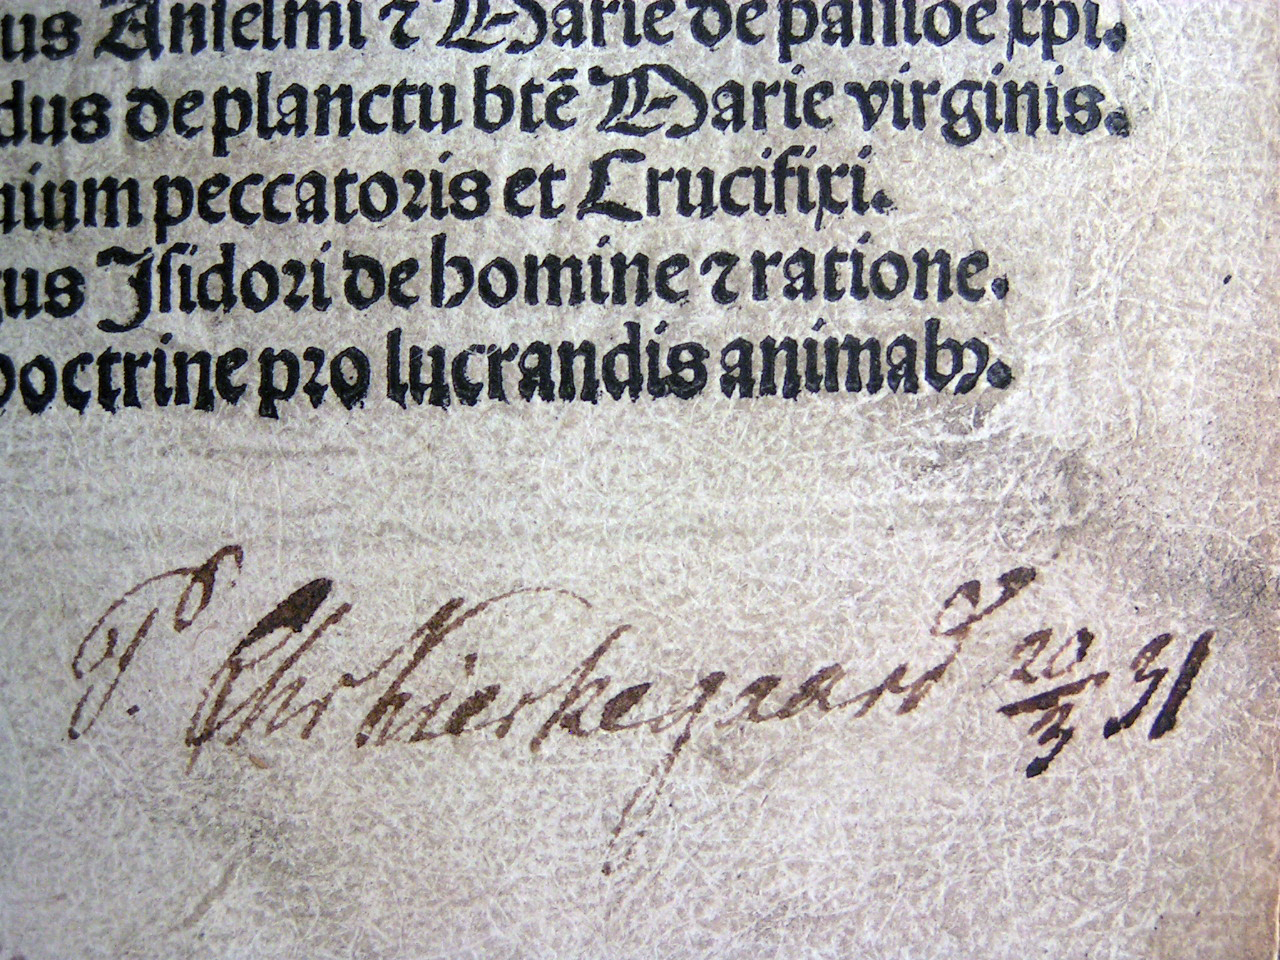 us Anselmi ⁊ Marie de passioe xpi.
dus de planctu btē Marie virginis.
nium peccatoꝛis et Crucifixi.
us Iſidoꝛi de homine ⁊ ratione.
Doctrine pꝛo lucrandis animabꝰ.
P. Chr Kierkegaard 20/3 31